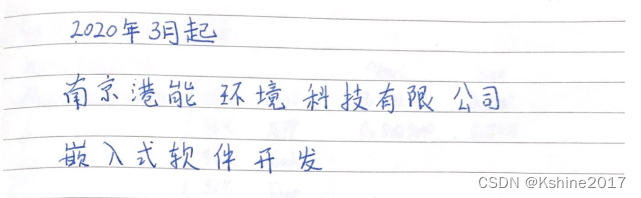 2020年3月起
南京港能环境科技有限公司
嵌入式软件开发
CSDN @Kshine2017